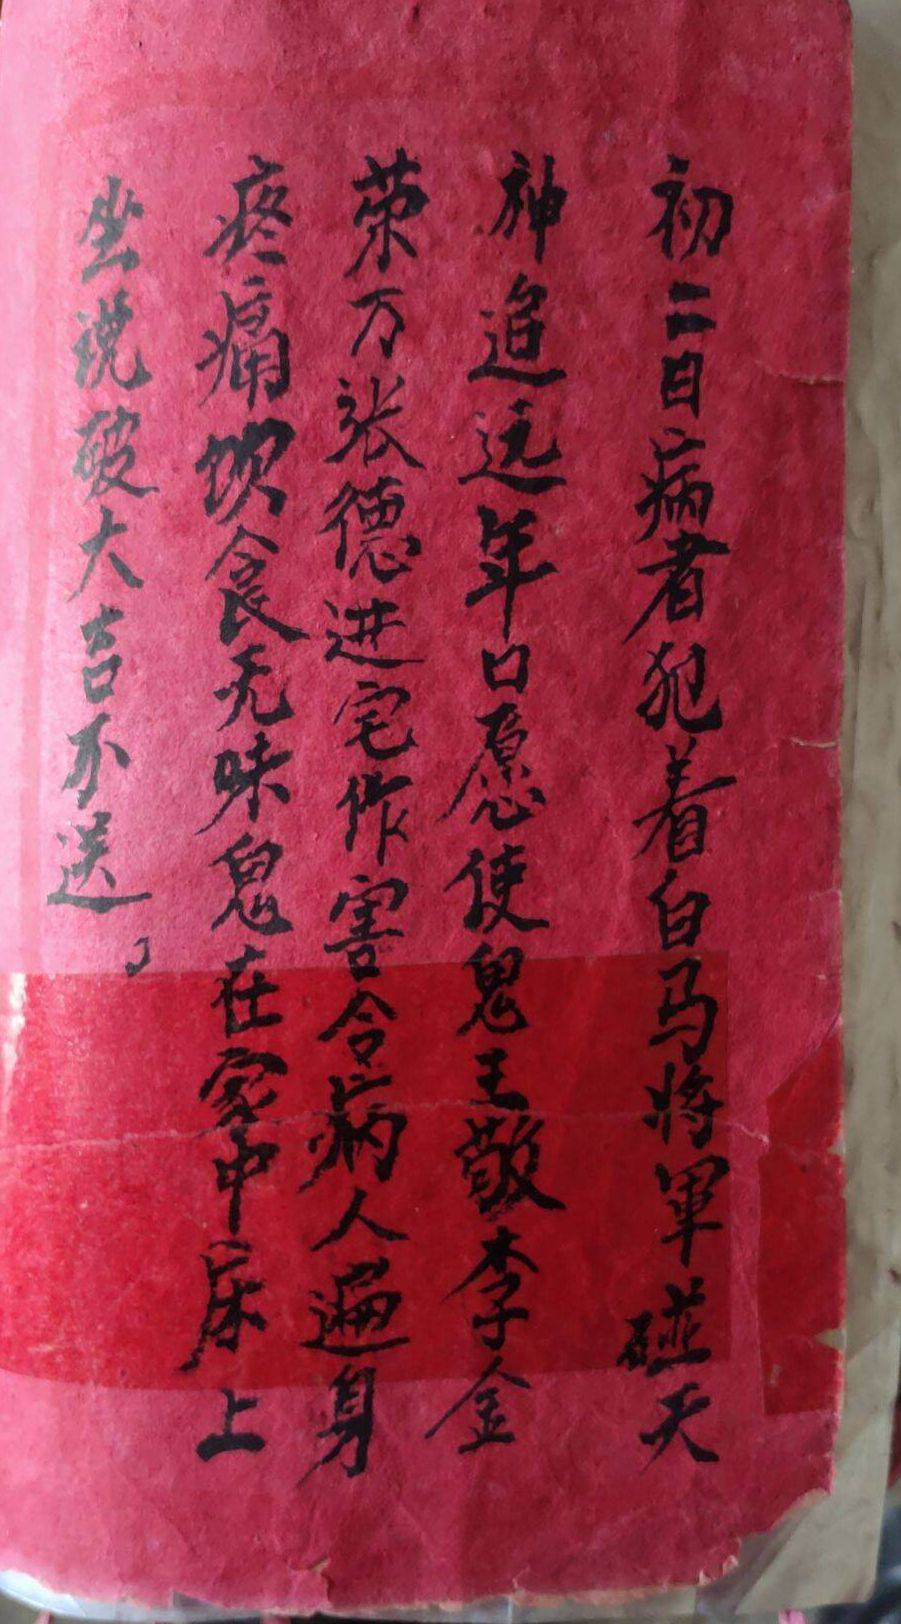 初二日病者犯着白马将軍碰天
神追远年口愿使鬼王敬李金
荣万张德进宅作害令病人遍身
疼痛饮食无味鬼在家中床上
坐说破大吉不送